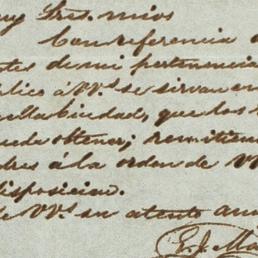 uy Sres. mios
Con referencia a
tes de mi pertenencia
plico á VVs. se sirvan en
ella Ciudad, que los
uede obtener; remitien
dres á la orden de VV
disposicion.
de VVs. su atento am
E. J. Ma